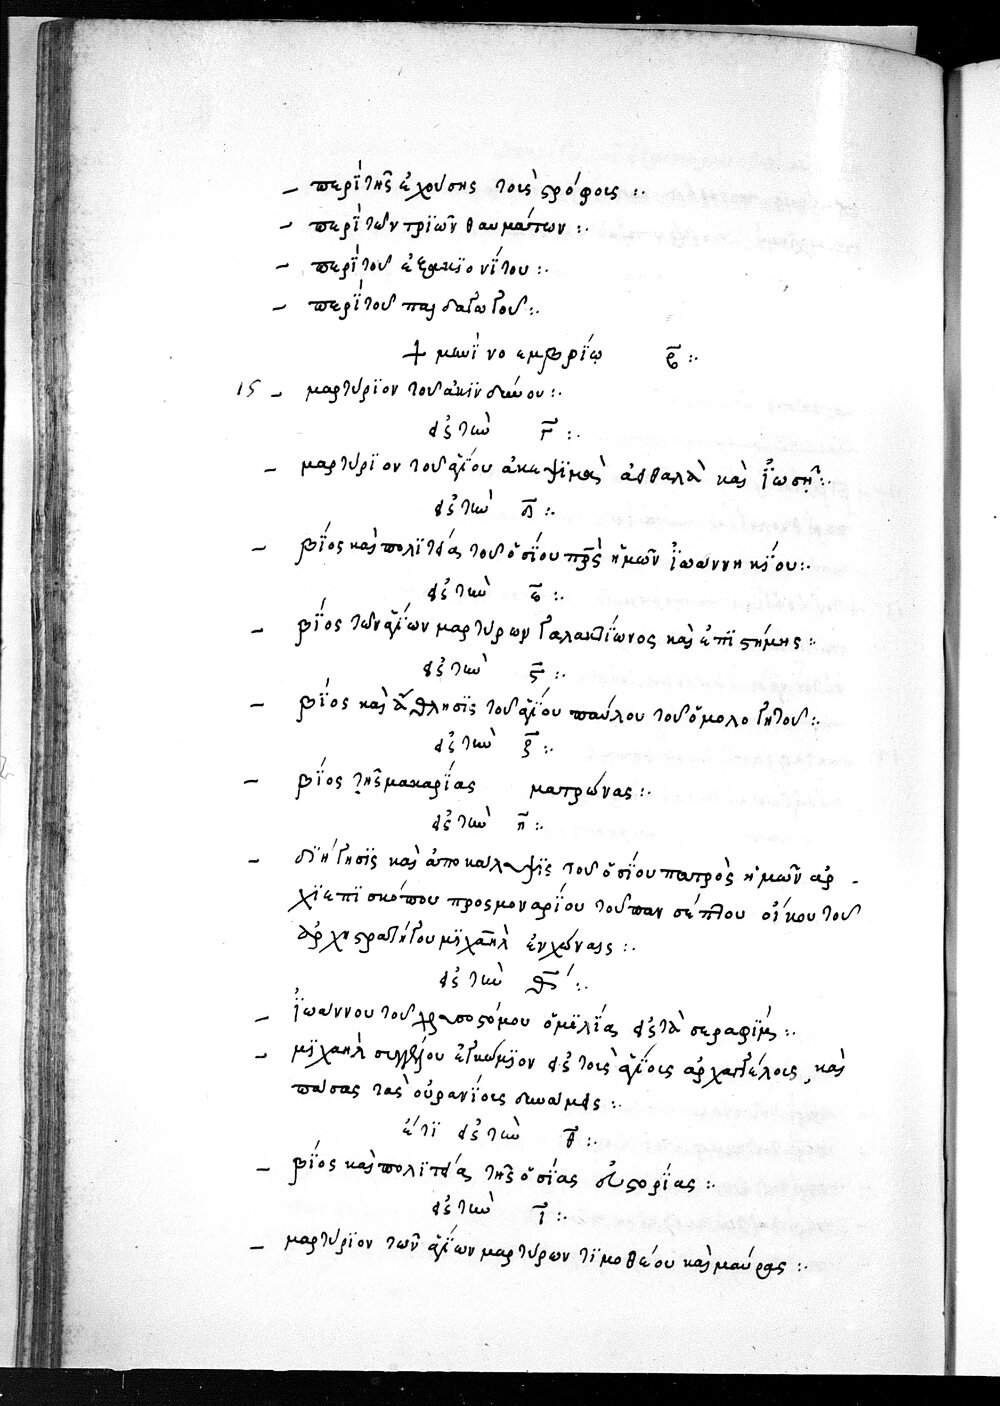 – περὶ τῆς ἐχούσης τοὺς ςρόφους :·
– περὶ τῶν τριῶν θαυμάτων :·
– περὶ τοῦ ἐξακιονίτου :·
– περὶ τοῦ παιδαγωγοῦ :·
+ μηνὶ νοεμβρίῳ β̅ :·
15 – μαρτύριον τοῦ ἀκινδύνου :·
εἰς τὴν γ̅ :·
– μαρτύριον τοῦ ἁγίου ἀκεψιμᾶ ἀειθαλᾶ καὶ ἰωσὴφ :·
εἰς τὴν δ̅ :·
– βίος καὶ πολιτεία τοῦ ὁσίου πρ̅ς ἡμῶν ἰωαννηκίου :·
εἰς τὴν ε̅ :·
– βίος τῶν ἁγίων μαρτύρων γαλακτίωνος καὶ ἐπιςήμης :·
εἰς τὴν ς̅ :·
– βίος καὶ ἄθλησις τοῦ ἁγίου παύλου τοῦ ὁμολογητοῦ :·
εἰς τὴν ζ̅ :·
– βίος τῆς μακαρίας ματρώνας :·
εἰς τὴν η̅ :·
– διήγησις καὶ ἀποκάλυψις τοῦ ὁσίου πατρὸς ἡμῶν ἀρ-
χιεπισκόπου προσμοναρίου τοῦ πανσέπτου οἴκου τοῦ
ἀρχηςρατήγου μιχαὴλ ἐν χώναις :·
εἰς τὴν θ̅ :·
– ἰωάννου τοῦ χρυσοςόμου ὁμιλία εἰς τὰ σεραφίμ :·
– μιχαὴλ συγγέλου ἐγκώμιον εἰς τοὺς ἁγίους ἀρχαγγέλους, καὶ
πάσας τὰς οὐρανίους δυνάμεις :·
ἔτι εἰς τὴν θ̅ :·
– βίος καὶ πολιτεία τῆς ὁσίας θεοκτίςης :·
εἰς τὴν ι̅ :·
– μαρτύριον τῶν ἁγίων μαρτύρων τιμοθέου καὶ μαύρας :·